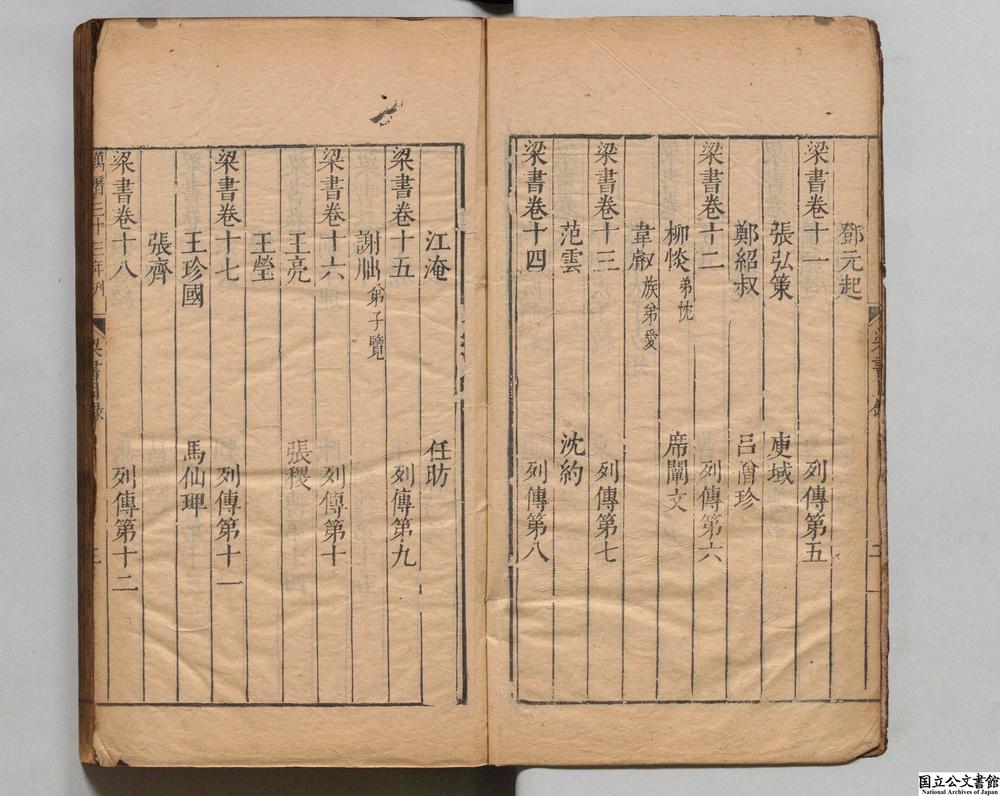 鄧元起
梁書卷十一 列傳第五
張弘策 庾域
鄭紹叔 呂僧珍
梁書卷十二 列傳第六
柳惔弟忱 席闡文
韋叡族弟愛
梁書卷十三 列傳第七
范雲 沈約
梁書卷十四 列傳第八
江淹 任昉
梁書卷十五 列傳第九
謝朏弟子覽
梁書卷十六 列傳第十
王亮 張稷
王瑩
梁書卷十七 列傳第十一
王珍國 馬仙琕
張齊
梁書卷十八 列傳第十二
萬曆三十三年刊 梁書目錄
国立公文書館
National Archives of Japan